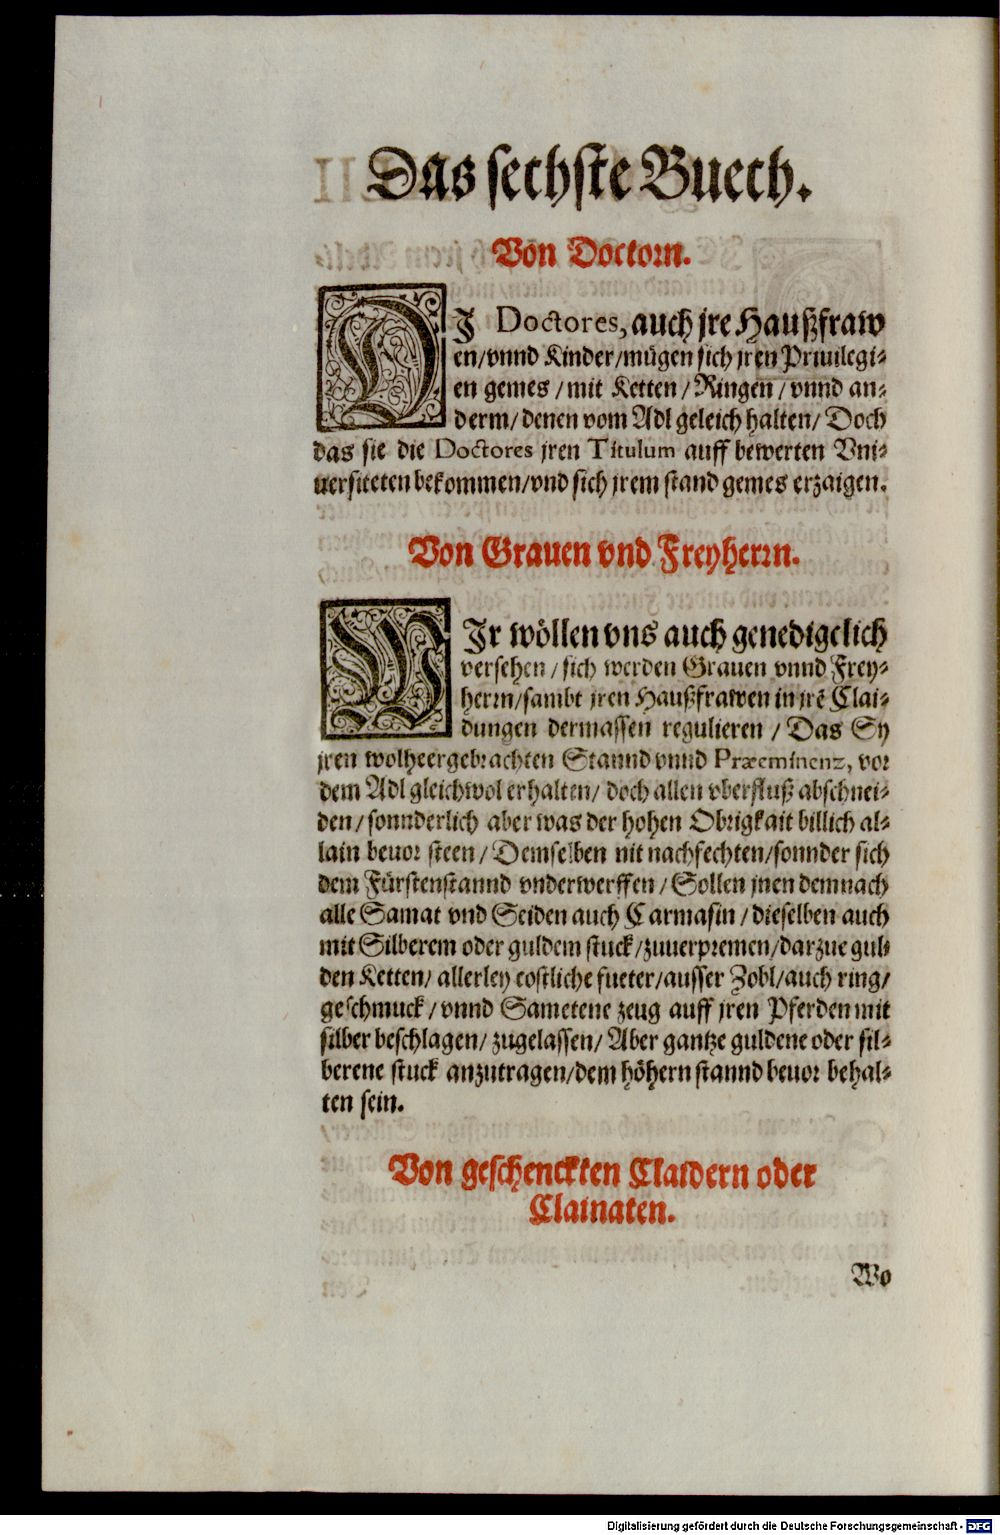 Das sechste Buech.
Von Doctorn.
DJ Doctores, auch jre Haußfraw
en/vnnd Kinder/mügen sich jren Priuilegi-
en gemes/mit Ketten/Ringen/vnnd an-
derm/denen vom Adl geleich halten/Doch
das sie die Doctores jren Titulum auff bewerten Vni-
uersiteten bekommen/vnd sich jrem stand gemes erzaigen.
Von Grauen vnd Freyherrn.
WJr wöllen vns auch genedigelich
versehen/sich werden Grauen vnnd Frey-
herrn/sambt jren Haußfrawen in jrẽ Clai-
dungen dermassen regulieren/Das Sy
jren wolheergebrachten Stannd vnnd Præeminenz, vor
dem Adl gleichwol erhalten/doch allen vberfluß abschnei-
den/sonnderlich aber was der hohen Obrigkait billich al-
lain beuor steen/Demselben nit nachfechten/sonnder sich
dem Fürstenstannd vnderwerffen/Sollen jnen demnach
alle Samat vnd Seiden auch Carmasin/dieselben auch
mit Silberem oder guldem stuck/zuuerpremen/darzue gul-
den Ketten/allerley costliche fueter/ausser Zobl/auch ring/
geschmuck/vnnd Sametene zeug auff jren Pferden mit
silber beschlagen/zugelassen/Aber gantze guldene oder sil-
berene stuck anzutragen/dem höhern stannd beuor behal-
ten sein.
Von geschenckten Claidern oder
Clainaten.
Wo
Digitalisierung gefördert durch die Deutsche Forschungsgemeinschaft - DFG